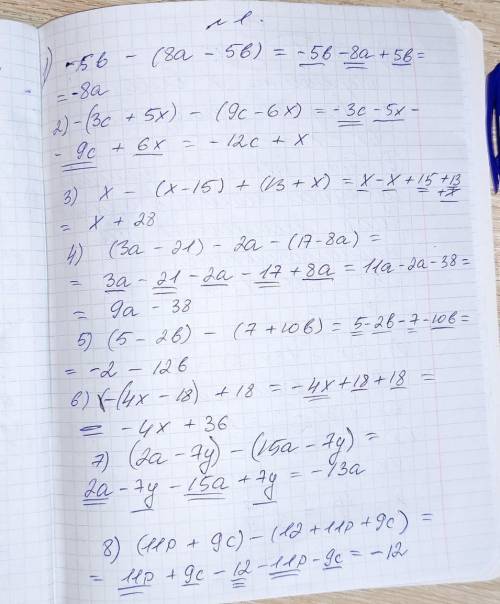 №1.
1) -5в - (8а - 5в) = -5в - 8а + 5в =
= -8а
2) -(3с + 5х) - (9с - 6х) = -3с - 5х -
- 9с + 6х = -12с + х
3) х - (х - 15) + (13 + х) = х - х + 15 + 13 + х
= х + 28
4) (3а - 21) - 2а - (17 - 8а) =
= 3а - 21 - 2а - 17 + 8а = 11а - 2а - 38 =
= 9а - 38
5) (5 - 2в) - (7 + 10в) = 5 - 2в - 7 - 10в =
= -2 - 12в
6) -(4х - 18) + 18 = -4х + 18 + 18 =
= -4х + 36
7) (2а - 7у) - (15а - 7у) =
2а - 7у - 15а + 7у = -13а
8) (11р + 9с) - (12 + 11р + 9с) =
= 11р + 9с - 12 - 11р - 9с = -12